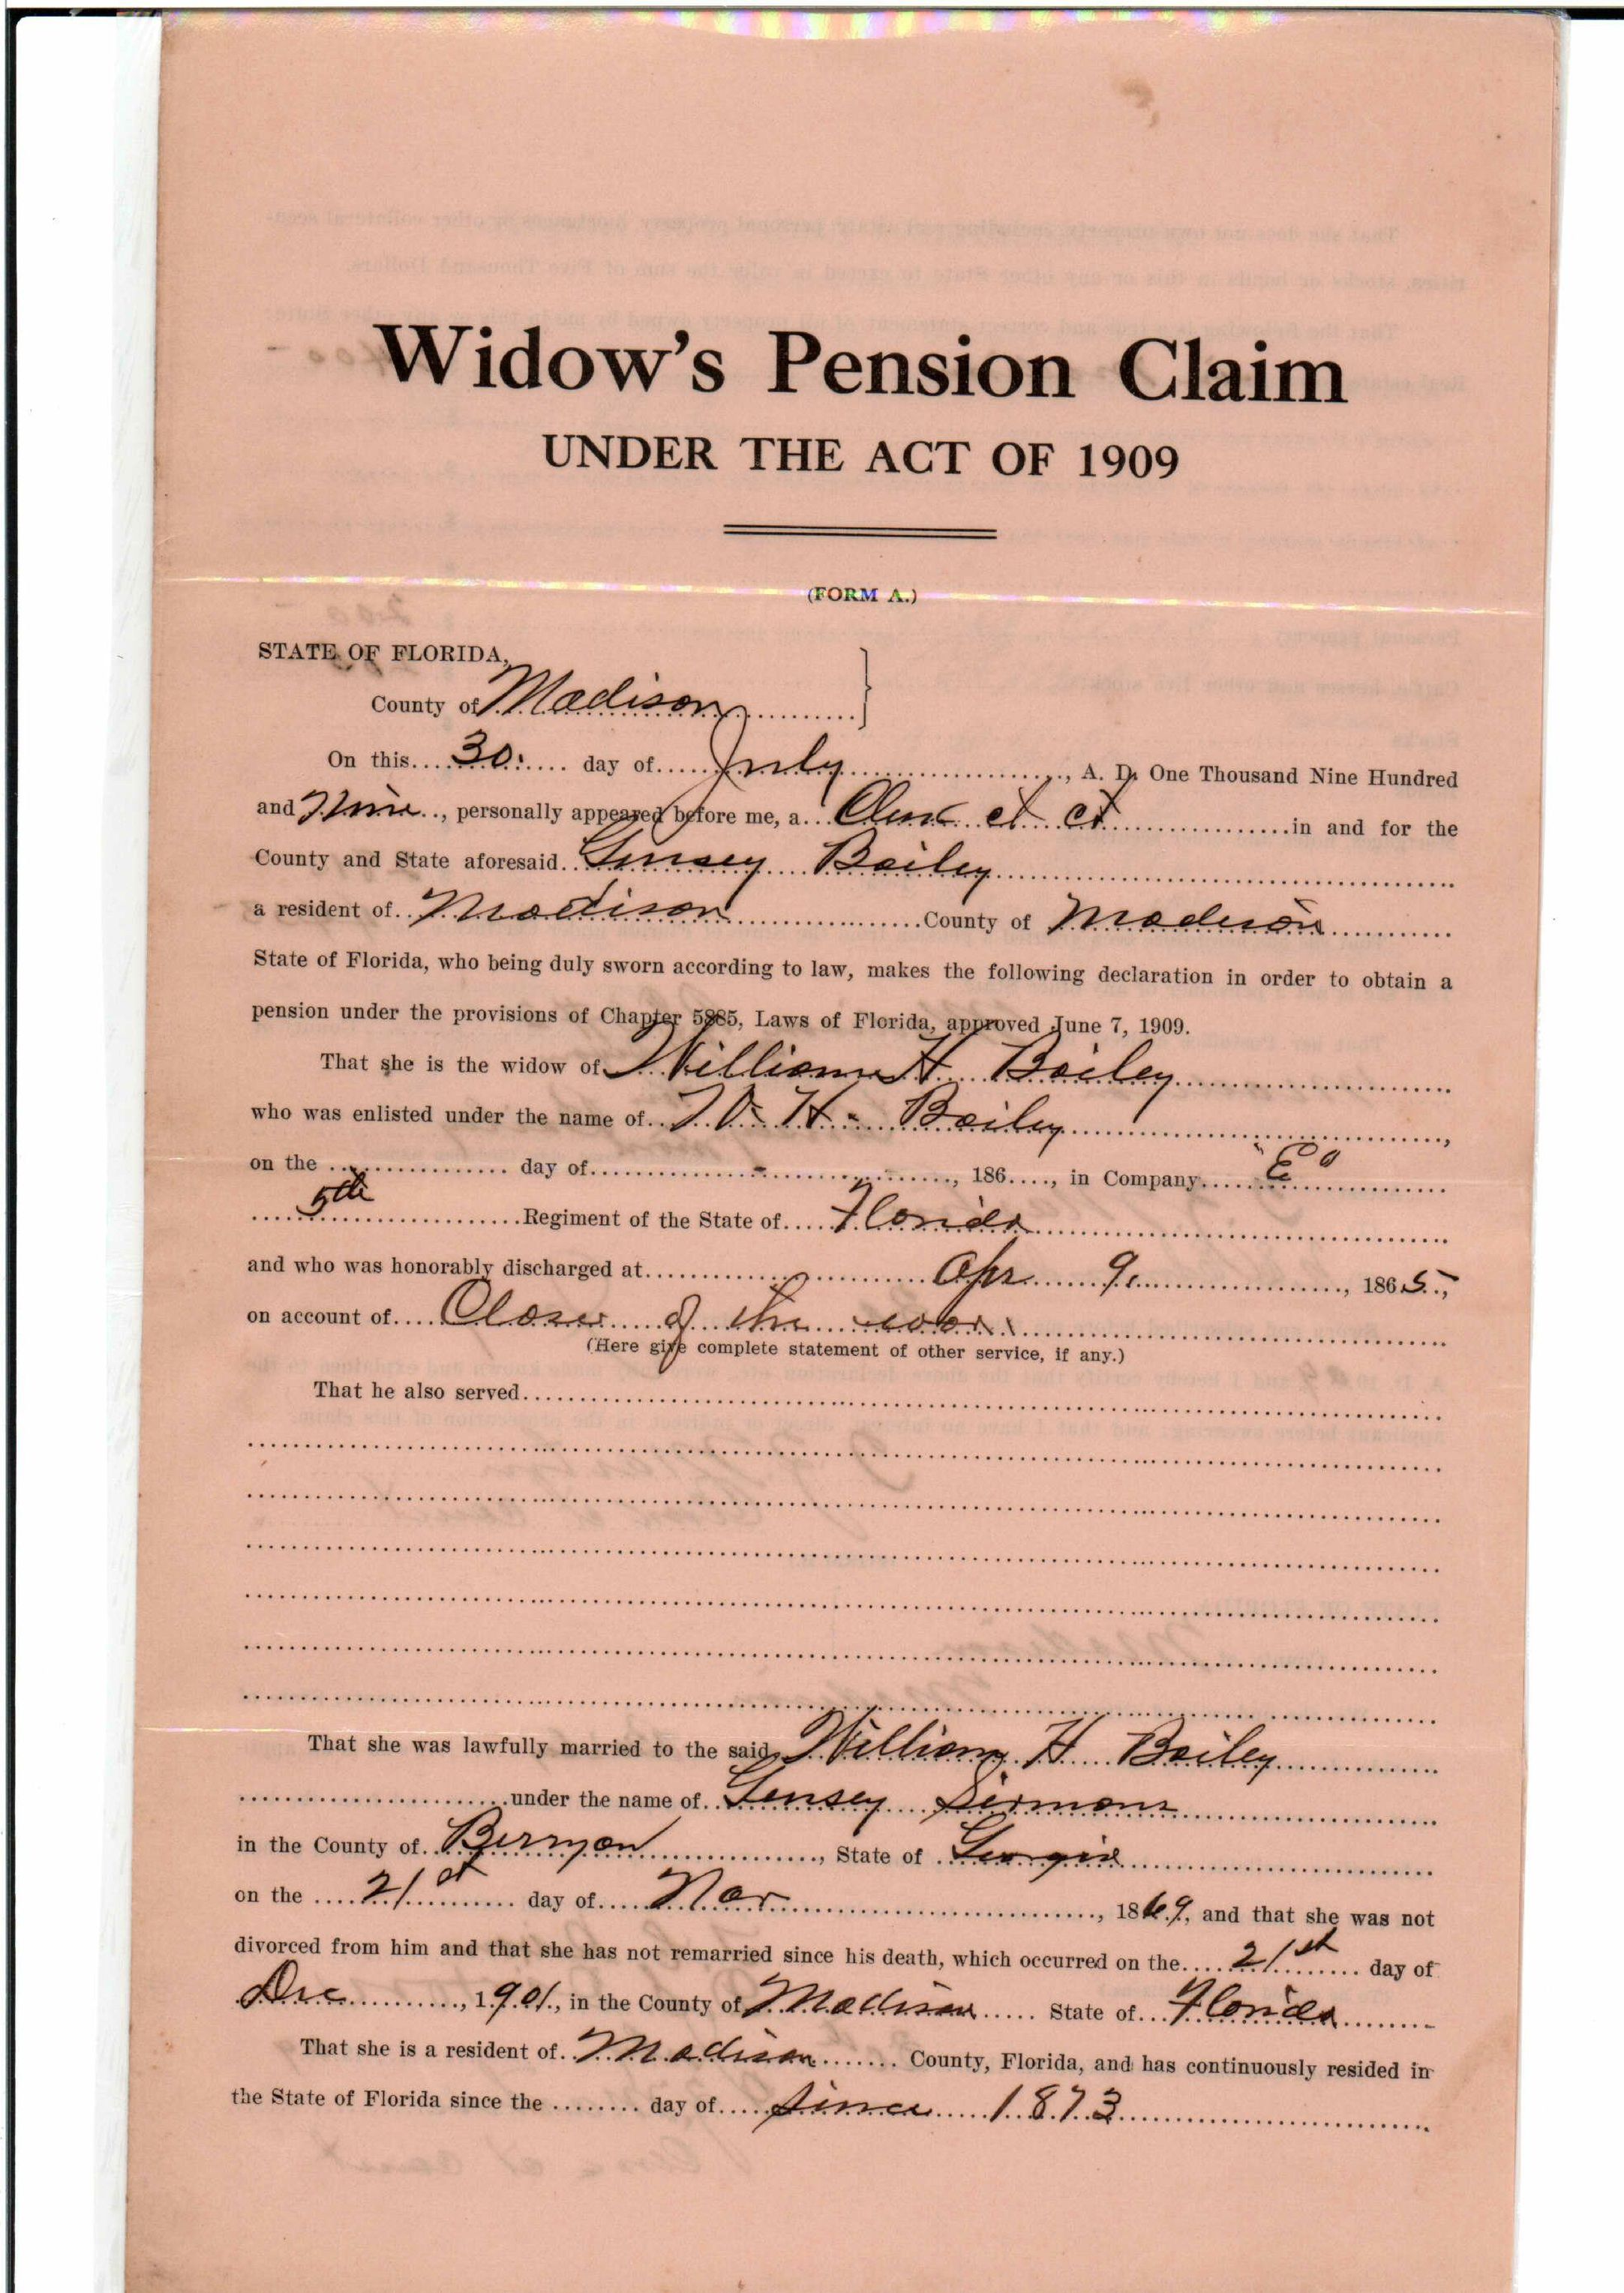 Widow's Pension Claim
UNDER THE ACT OF 1909
(FORM A.)
STATE OF FLORIDA,
County of Madison
On this 30. day of July, A. D. One Thousand Nine Hundred
and Nine, personally appeared before me, a Clerk ct ct in and for the
County and State aforesaid Bailey
a resident of Madison County of Madison
State of Florida, who being duly sworn according to law, makes the following declaration in order to obtain a
pension under the provisions of Chapter 5885, Laws of Florida, approved June 7, 1909.
That she is the widow of William H Bailey
who was enlisted under the name of W. H. Bailey,
on the day of - , 186 , in Company "E"
5th Regiment of the State of Florida
and who was honorably discharged at Apr 9. , 1865,
on account of Close of the war.
(Here give complete statement of other service, if any.)
That he also served
That she was lawfully married to the said William H Bailey
under the name of Sirmons
in the County of Berryen, State of Georgia
on the 21st day of Nov, 1869, and that she was not
divorced from him and that she has not remarried since his death, which occurred on the 21st day of
Dec, 1901, in the County of Madison State of Florida
That she is a resident of Madison County, Florida, and has continuously resided in
the State of Florida since the day of since 1873